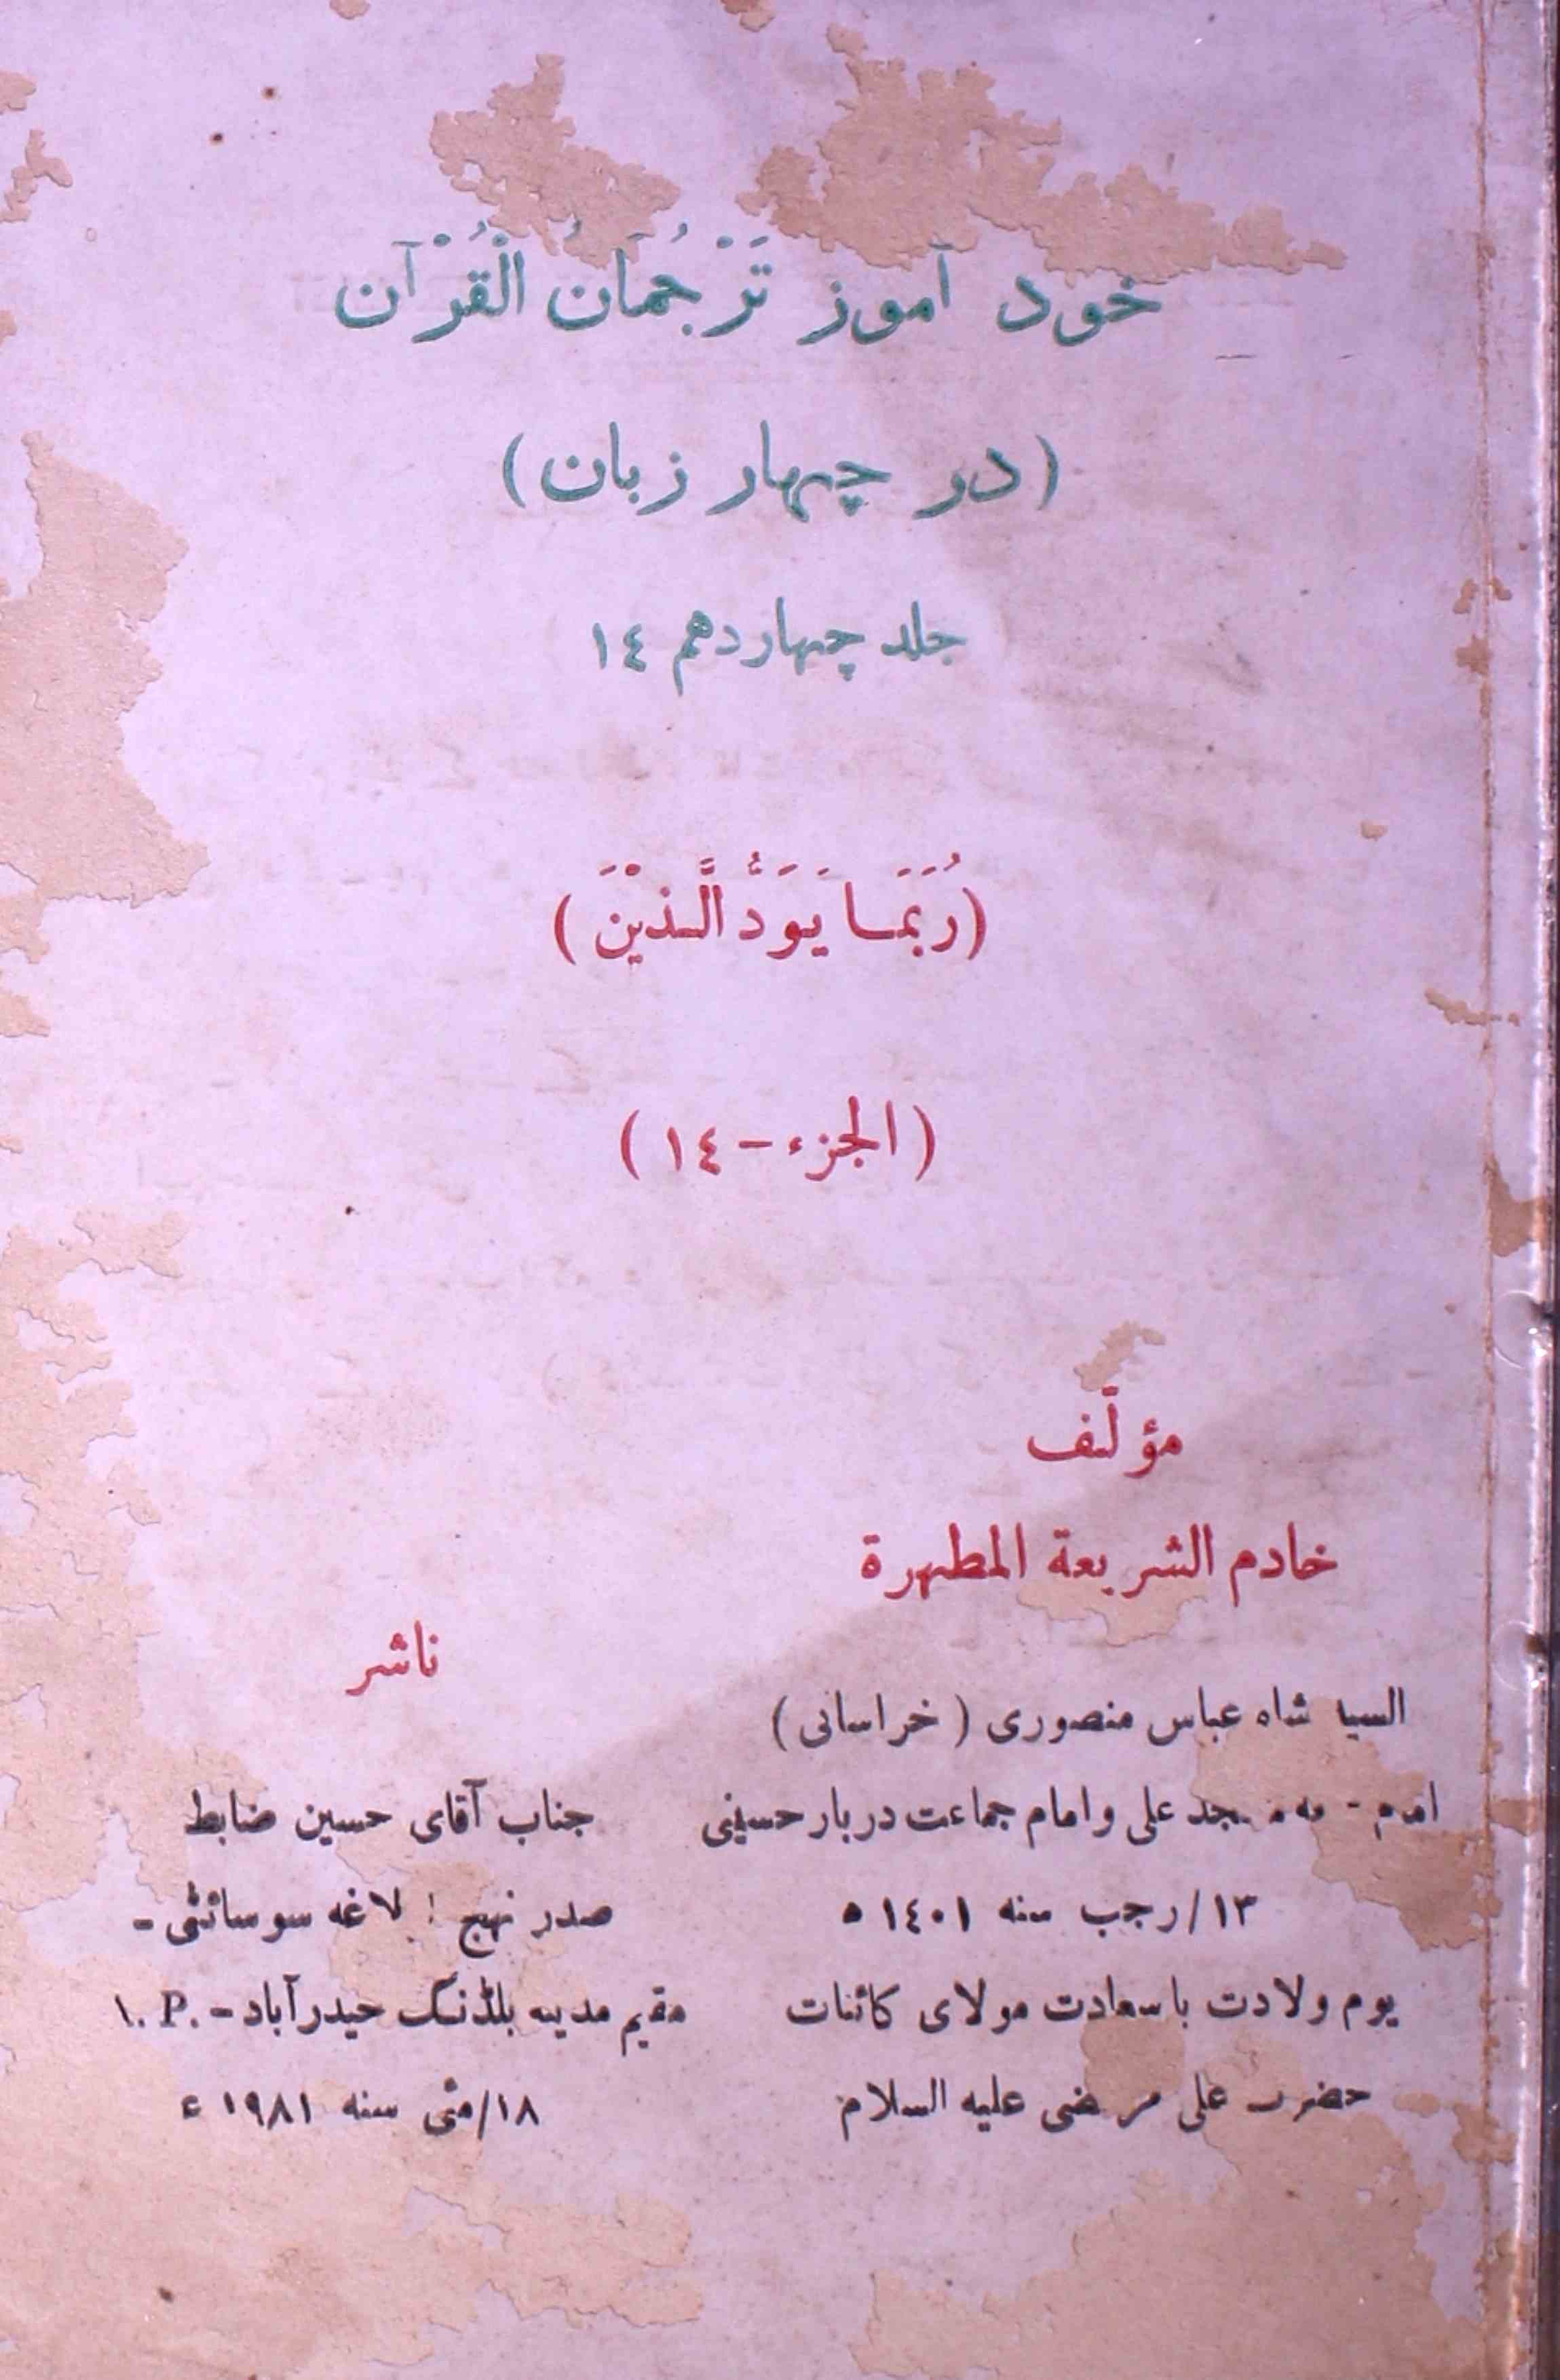 خود آموز تَرْجُمَانُ الْقُرْآن
(در چہار زبان)
جلد چہاردهم ١٤
(رُبَمَا يَوَدُّ الَّذِيْنَ)
(الجزء - ١٤)
مؤلّف
خادم الشریعة المطہرة
السید شاہ عباس منصوری (خراسانی)
علی و امام جماعت دربار حسینی
١٣/رجب سنہ ١٤٠١ ھ
یوم ولادت باسعادت مولای کائنات
حضرت علی مرتضی علیہ السلام
ناشر
جناب آقای حسین ضابط
صدر نہج البلاغہ سوسائٹی -
مقیم مدینہ بلڈنگ حیدرآباد - .P
١٨/مئی سنہ ١٩٨١ ء